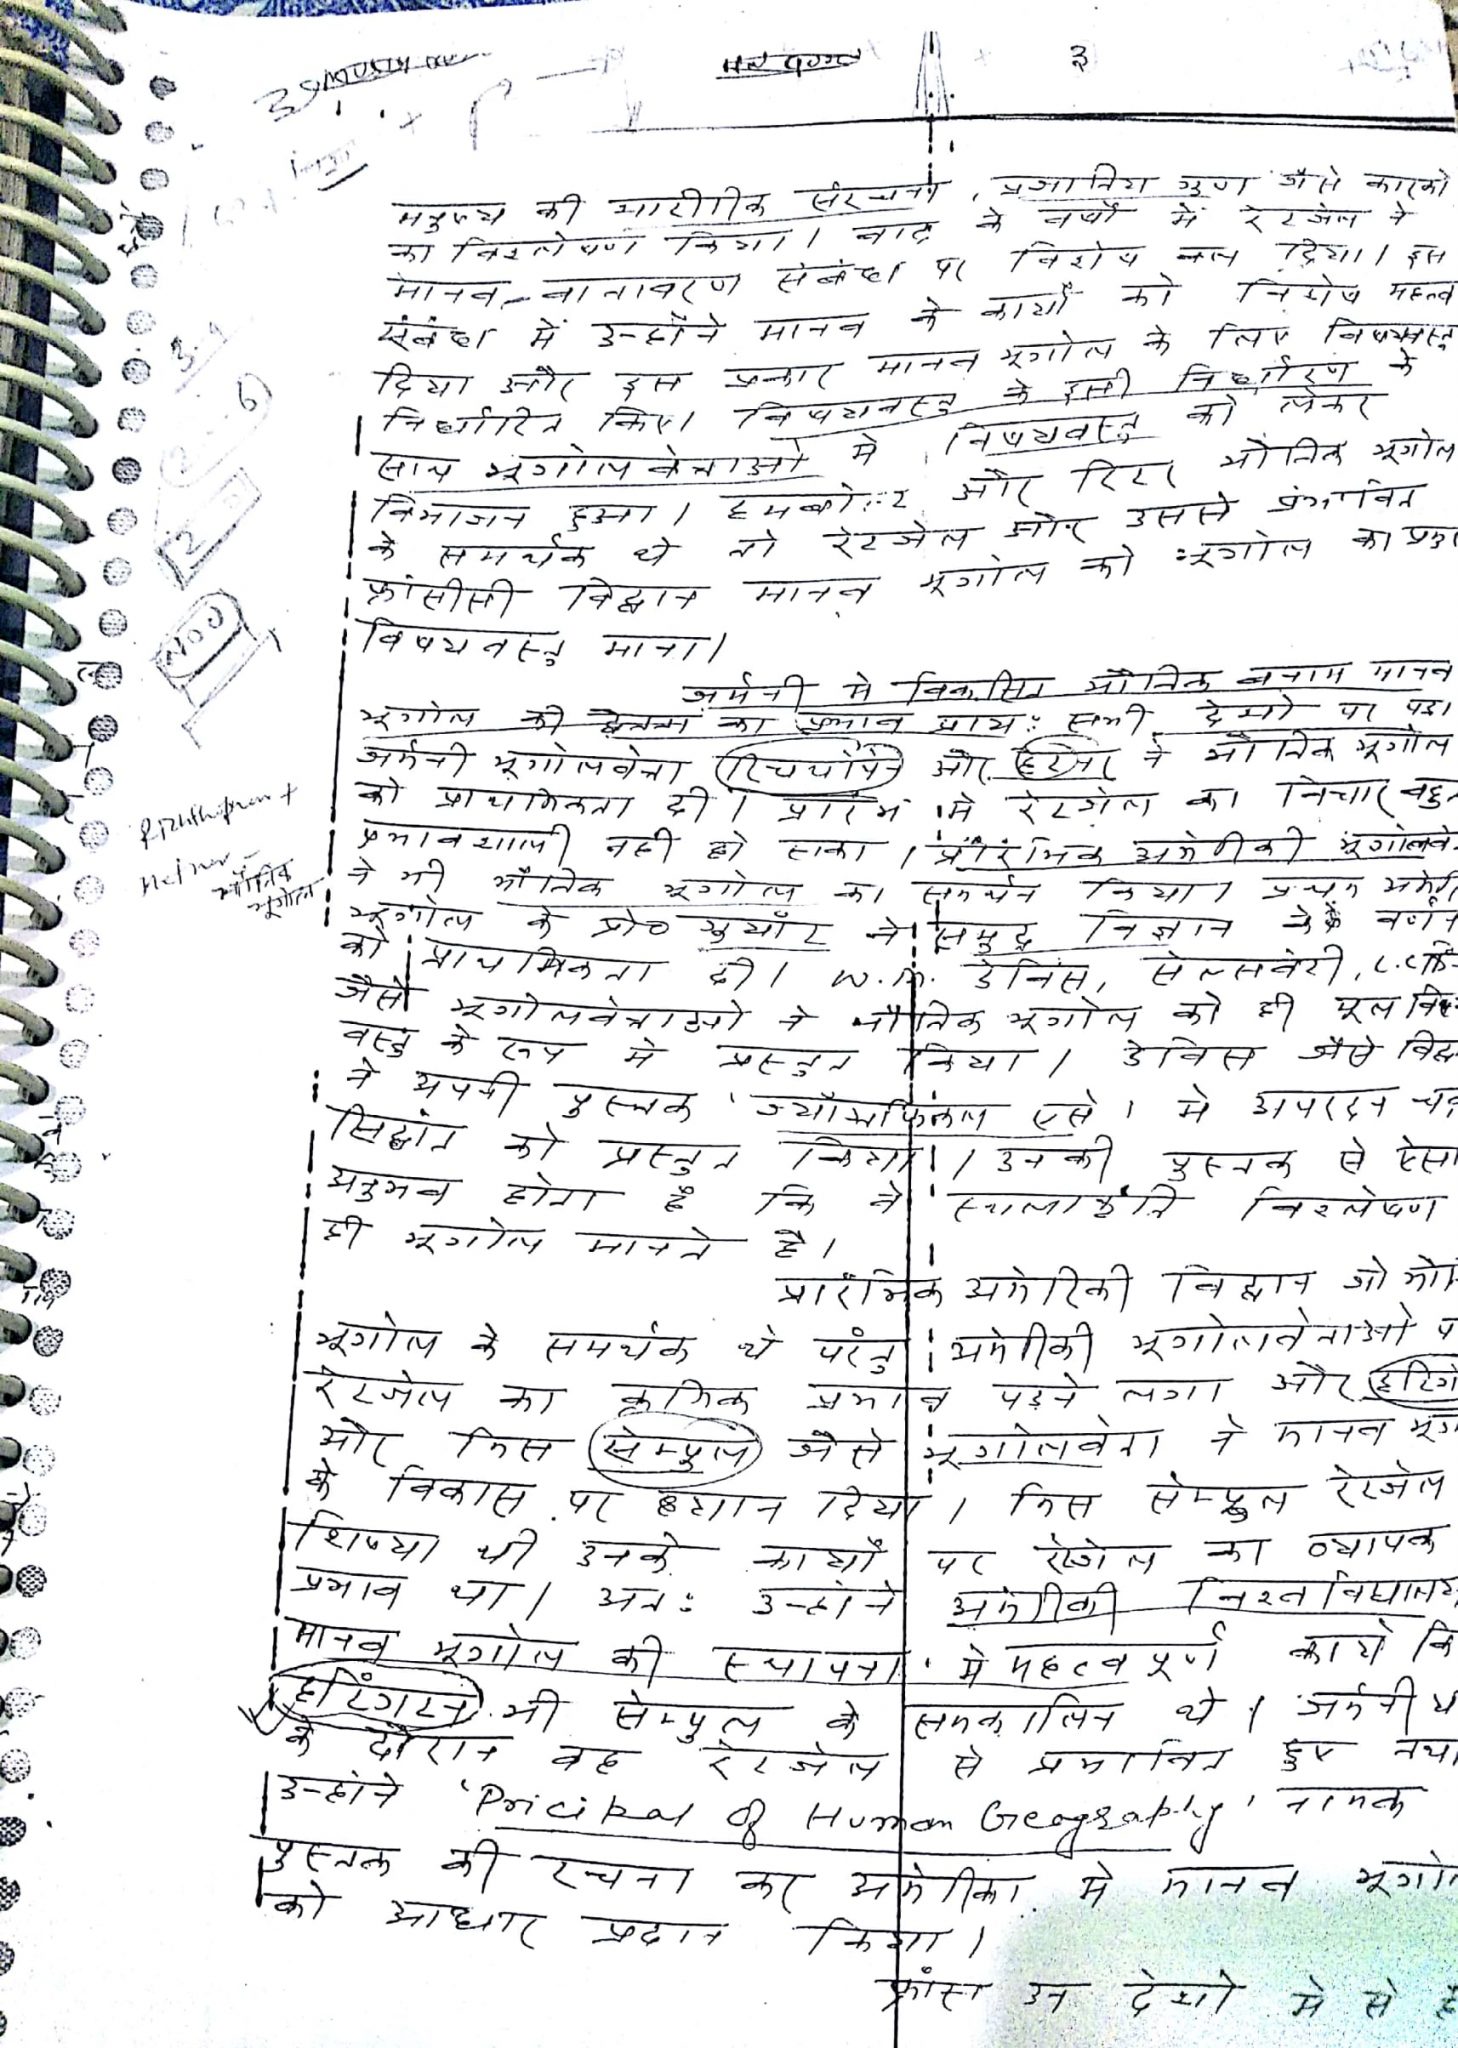 ३
मनुष्य की शारीरिक संरचना, प्रजातिय गुण जैसे कारको
का विश्लेषण किया। बाद के वर्षो में रेटजेल ने
मानव-वातावरण संबंध पर विशेष बल दिया। इस
संबंध में उन्होंने मानव के कार्यो को विशेष महत्व
दिया और इस प्रकार मानव भूगोल के लिए विषयवस्तु
निर्धारित किए। विषयवस्तु के इसी निर्धारण के
साथ भूगोलवेत्ताओ मे विषयवस्तु को लेकर
विभाजन हुआ। हमबोल्ट और रिटर भौतिक भूगोल
के समर्थक थे तो रेटजेल और उससे प्रभावित
फ्रांसीसी विद्वान मानव भूगोल को भूगोल का
विषयवस्तु माना।
जर्मनी मे विकसित भौतिक बनाम मानव
भूगोल की द्वैतता का प्रभाव प्राय: सभी देशो पर पडा।
जर्मनी भूगोलवेत्ता रिचथोफेन और हेटनर ने भौतिक भूगोल
को प्राथमिकता दी। प्रारंभ मे रेटजेल का विचार बहुत
प्रभावशाली नही हो सका। प्रारंभिक अमेरीकी भूगोलवे
ने भी भौतिक भूगोल का समर्थन किया। प्रथम अमेरी
भूगोल के प्रो० गुयॉट ने समुद्र विज्ञान के वर्णन
को प्राथमिकता दी। W.M. डेविस, सेल्सबरी,
जैसे भूगोलवेत्ताओ ने भौतिक भूगोल को ही मूल विषय
वस्तु के रूप मे प्रस्तुत किया। डेविस जैसे विद्व
ने अपनी पुस्तक 'ज्यॉग्राफिकल एसे' मे अपरदन चक्र
सिद्धांत को प्रस्तुत किया। उनकी पुस्तक से ऐसा
अनुभव होता है कि वे स्थलाकृति विश्लेषण
ही भूगोल मानते है।
प्रारंभिक अमेरिकी विद्वान जो भौति
भूगोल के समर्थक थे परंतु अमेरीकी भूगोलवेत्ताओ प
रेटजेल का क्रमिक प्रभाव पड़ने लगा और हटिंग
और मिस सेम्पुल जैसे भूगोलवेत्ता ने मानव भूगो
के विकास पर ध्यान दिया। मिस सेम्पुल रेटजेल
शिष्या थी उनके कार्यो पर रेटजेल का व्यापक
प्रभाव था। अत: उन्होंने अमेरीकी विश्वविद्यालय
मानव भूगोल की स्थापना मे महत्वपूर्ण कार्य कि
हटिंगटन भी सेम्पुल के समकालिन थे। जर्मनी
के दौरान वह रेटजेल से प्रभावित हुए तथा
उन्होंने 'Pricipal of Human Geography' नामक
पुस्तक की रचना कर अमेरीका मे मानव भूगोल
को आधार प्रदान किया।
फ्रांस उन देशो मे से है
3.1
2
6
Hetner
भौतिक
भूगोल